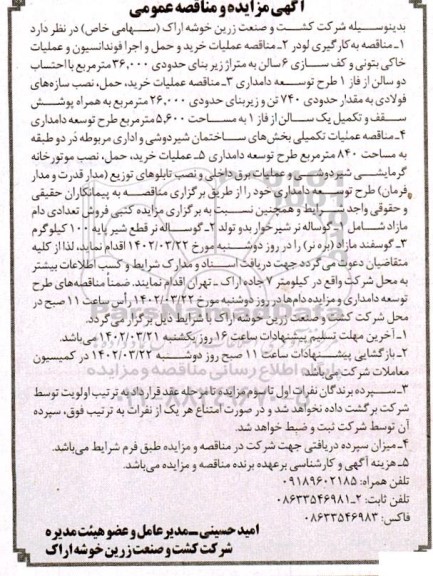 آگهی مزایده و مناقصه عمومی
بدینوسیله شرکت کشت و صنعت زرین خوشه اراک (سهامی خاص) در نظر دارد
۱ـ مناقصه به کارگیری لودر ۲ـ مناقصه عملیات خرید و حمل و اجرا فونداسیون و عملیات
خاکی بتونی و کف سازی ۶ سالن به متراژ زیر بنای حدودی ۳۶,۰۰۰ مترمربع با احتساب
دو سالن از فاز ۱ طرح توسعه دامداری ۳ـ مناقصه عملیات خرید، حمل، نصب سازه‌های
فولادی به مقدار حدودی ۷۴۰ تن و زیربنای حدودی ۲۶,۰۰۰ مترمربع به همراه پوشش
سقف و تکمیل یک سالن از فاز ۱ به مساحت ۵,۶۰۰ مترمربع طرح توسعه دامداری
۴ـ مناقصه عملیات تکمیلی بخش‌های ساختمان شیردوشی و اداری مربوطه در دو طبقه
به مساحت ۸۴۰ مترمربع طرح توسعه دامداری ۵ـ عملیات خرید، حمل، نصب موتورخانه
گرمایشی شیردوشی و عملیات برق داخلی و نصب تابلوهای توزیع (مدار قدرت و مدار
فرمان) طرح توسعه دامداری خود را از طریق برگزاری مناقصه به پیمانکاران حقیقی
و حقوقی واجد شرایط و همچنین نسبت به برگزاری مزایده کتبی فروش تعدادی دام
مازاد شامل ۱ـ گوساله نر شیرخوار بدو تولد ۲ـ گوساله نر قطع شیر پایه ۱۰۰ کیلوگرم
۳ـ گوسفند مازاد (بره نر) را در روز دوشنبه مورخ ۱۴۰۲/۰۳/۲۲ اقدام نماید، لذا از کلیه
متقاضیان دعوت می‌گردد جهت دریافت اسناد و مدارک شرایط و کسب اطلاعات بیشتر
به محل شرکت واقع در کیلومتر ۷ جاده اراک ـ تهران اقدام نمایند. ضمناً مناقصه‌های طرح
توسعه دامداری و مزایده دام‌ها در روز دوشنبه مورخ ۱۴۰۲/۰۳/۲۲ رأس ساعت ۱۱ صبح در
محل شرکت کشت و صنعت زرین خوشه اراک با شرایط ذیل برگزار می‌گردد.
۱ـ آخرین مهلت تسلیم پیشنهادات ساعت ۱۶ روز یکشنبه ۱۴۰۲/۰۳/۲۱ می‌باشد.
۲ـ بازگشایی پیشنهادات ساعت ۱۱ صبح روز دوشنبه ۱۴۰۲/۰۳/۲۲ در کمیسیون
معاملات شرکت می‌باشد
۳ـ سپرده برندگان نفرات اول تا سوم مزایده تا مرحله عقد قرارداد به ترتیب اولویت توسط
شرکت برگشت داده نخواهد شد و در صورت امتناع هر یک از نفرات به ترتیب فوق، سپرده
آن توسط شرکت ثبت و ضبط خواهد شد.
۴ـ میزان سپرده دریافتی جهت شرکت در مناقصه و مزایده طبق فرم شرایط می‌باشد.
۵ـ هزینه آگهی و کارشناسی برعهده برنده مناقصه و مزایده می‌باشد.
تلفن همراه: ۰۹۱۸۹۶۰۲۱۸۵
تلفن ثابت: ۲ـ۰۸۶۳۳۵۴۶۹۸۱
فاکس: ۰۸۶۳۳۵۴۶۹۸۳
امید حسینی ـ مدیر عامل و عضو هیئت مدیره
شرکت کشت و صنعت زرین خوشه اراک